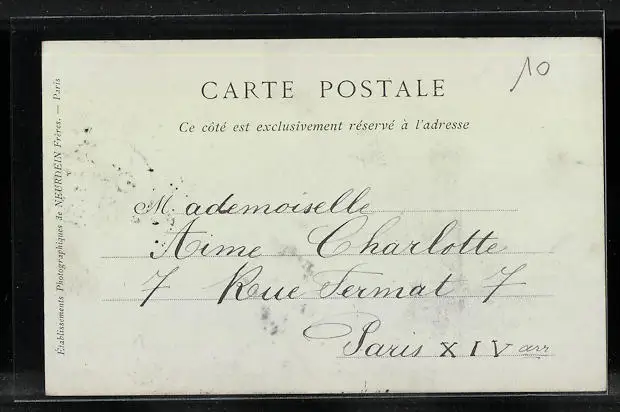 10
CARTE POSTALE
Ce côté est exclusivement réservé à l'adresse
Mademoiselle
Aime Charlotte
7 Rue Fermat 7
Paris XIV arr
Établissements Photographiques de NEURDEIN Frères. — Paris